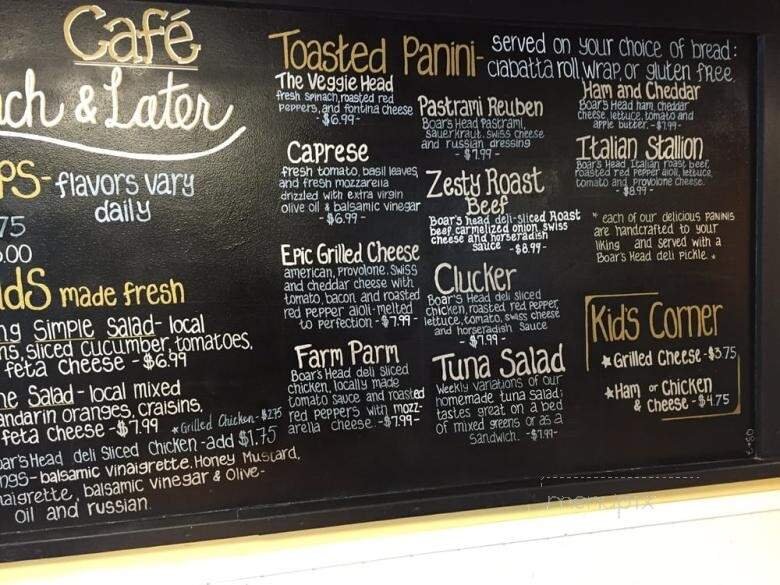 Café
& Later
flavors vary
daily
75
.00
made fresh
Simple Salad - local
sliced cucumber, tomatoes,
feta cheese - $6.99
Salad - local mixed
mandarin oranges, craisins,
feta cheese - $7.99 *Grilled Chicken - $2.75
Boar's Head deli sliced chicken - add $1.75
balsamic vinaigrette, Honey Mustard,
balsamic vinegar & Olive -
oil and russian
Toasted Panini - served on your choice of bread:
ciabatta roll, wrap, or gluten free
The Veggie Head
fresh spinach, roasted red
peppers, and fontina cheese
- $6.99 -
Caprese
fresh tomato, basil leaves,
and fresh mozzarella
drizzled with extra virgin
olive oil & balsamic vinegar
- $6.99 -
Epic Grilled Cheese
american, provolone, swiss
and cheddar cheese with
tomato, bacon, and roasted
red pepper aioli - melted
to perfection - $7.99 -
Farm Parm
Boar's Head deli sliced
chicken, locally made
tomato sauce and roasted
red peppers with mozz-
arella cheese. - $7.99 -
Pastrami Reuben
Boar's Head Pastrami,
sauerkraut, swiss cheese
and russian dressing
- $7.99 -
Zesty Roast
Beef
Boar's head deli-sliced Roast
beef, carmelized onion, swiss
cheese and horseradish
sauce - $8.99 -
Clucker
Boar's Head deli sliced
chicken, roasted red pepper,
lettuce, tomato, swiss cheese
and horseradish sauce
- $7.99 -
Tuna Salad
Weekly variations of our
homemade tuna salad;
tastes great on a bed
of mixed greens or as a
sandwich. - $7.99 -
Ham and Cheddar
Boar's Head ham, cheddar
cheese, lettuce, tomato and
apple butter. - $7.99 -
Italian Stallion
Boar's Head Italian roast beef,
roasted red pepper aioli, lettuce,
tomato and provolone cheese.
- $8.99 -
* each of our delicious paninis
are handcrafted to your
liking and served with a
Boar's Head deli pickle. *
Kid's Corner
★ Grilled Cheese - $3.75
★ Ham or Chicken
& Cheese - $4.75
menupix